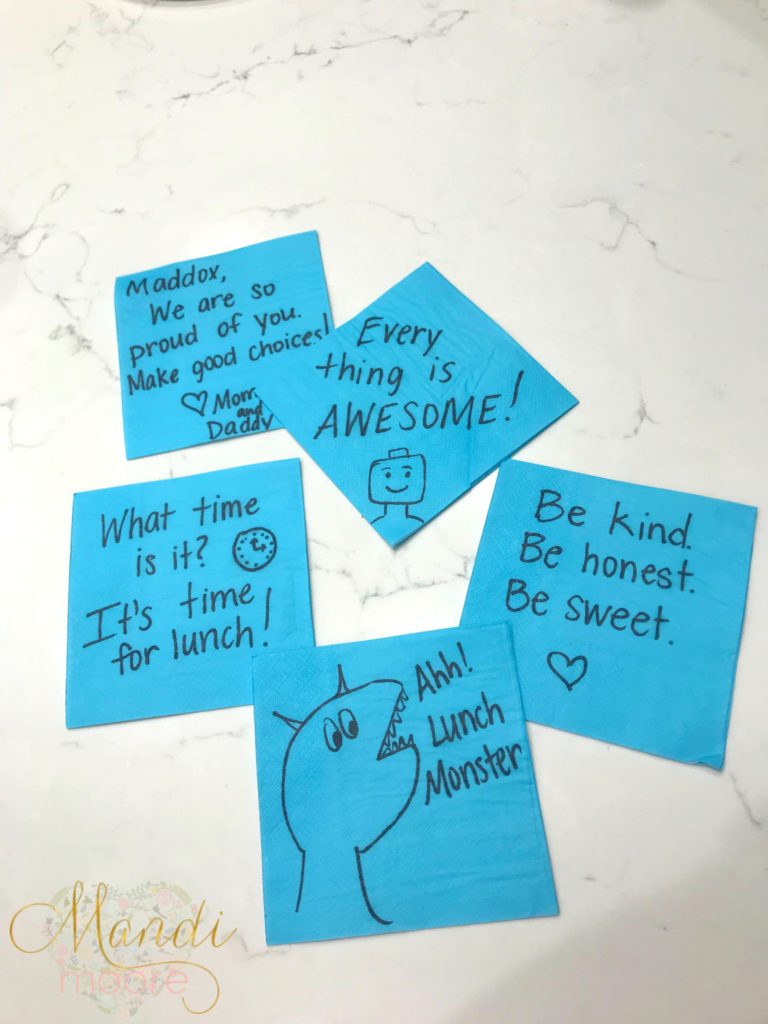 Maddox,
We are so
proud of you.
Make good choices!
♡ Mom
and
Daddy
Every
thing is
AWESOME!
What time
is it?
It's time
for lunch!
Be kind.
Be honest.
Be sweet.
Ahh!
Lunch
Monster
Mandi
moore